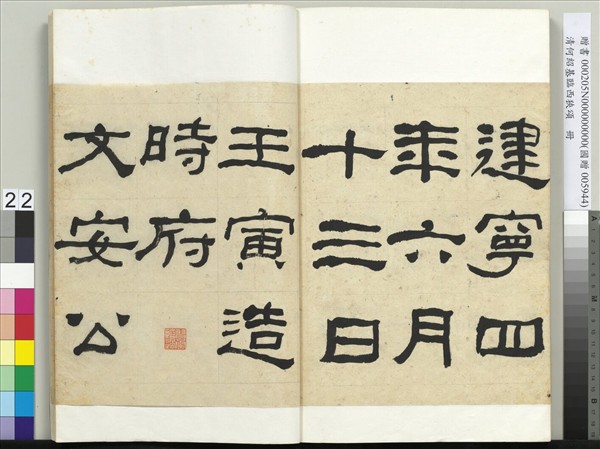 建寧四
年六月
十三日
壬寅造
時府
文安公
贈書 000205N000000000(國贈 005944)
清何紹基臨西狹頌 冊
22
A
M
B